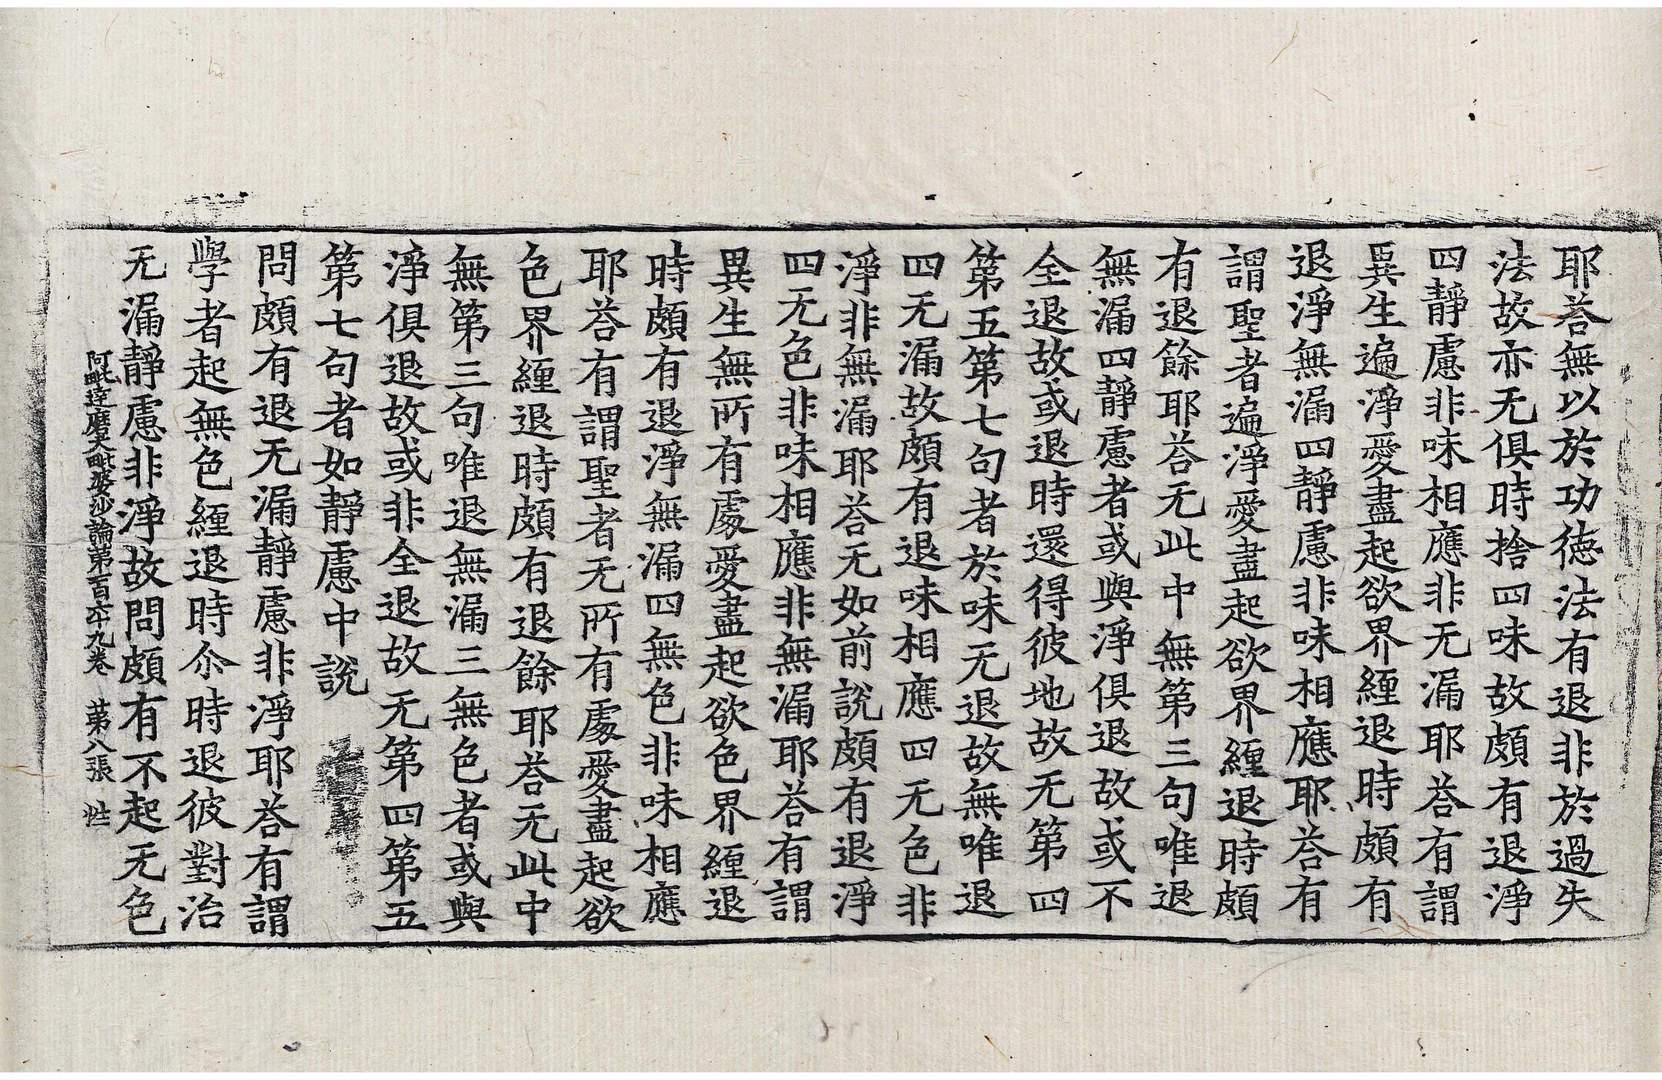 耶荅無以於功徳法有退非於過失
法故亦无俱時捨四味故頗有退淨
四靜慮非味相應非无漏耶荅有謂
異生遍淨愛盡起欲界纏退時頗有
退淨無漏四靜慮非味相應耶荅有
謂聖者遍淨愛盡起欲界纏退時頗
有退餘耶荅无此中無第三句唯退
無漏四靜慮者或與淨俱退故或不
全退故或退時還得彼地故无第四
第五第七句者於味无退故無唯退
四无漏故頗有退味相應四无色非
淨非無漏耶荅无如前說頗有退淨
四无色非味相應非無漏耶荅有謂
異生無所有處愛盡起欲色界纏退
時頗有退淨無漏四無色非味相應
耶荅有謂聖者无所有處愛盡起欲
色界纏退時頗有退餘耶荅无此中
無第三句唯退無漏三無色者或與
淨俱退故或非全退故无第四第五
第七句者如靜慮中說
問頗有退无漏靜慮非淨耶荅有謂
學者起無色纏退時尒時退彼對治
无漏靜慮非淨故問頗有不起无色
阿毗達磨大毗婆沙論第百六十九卷 第八張 性